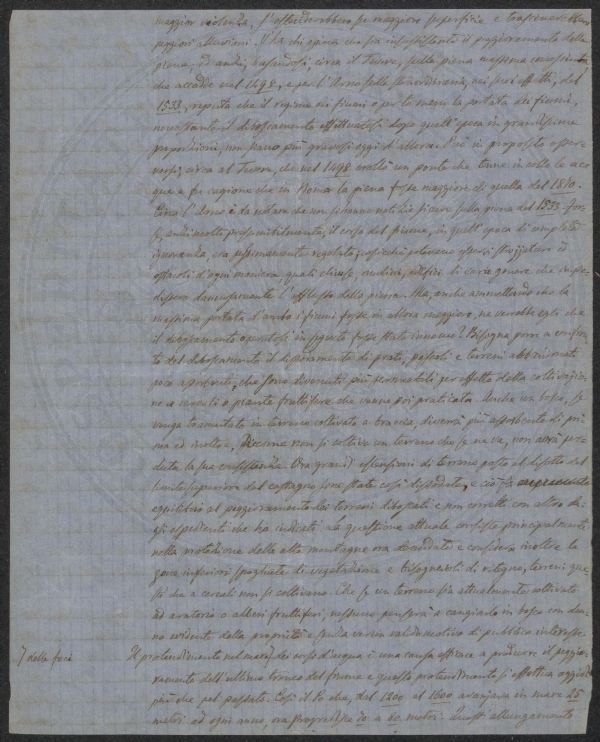 maggior violenza, s'estenderebbero su maggiore superficie e trascinerebbero
peggiori alluvioni. V'ha chi opina che sia insussistente il peggioramento delle
piene, ed anzi, basandosi, circa il Tevere, sulla piena massima
che accadde nel 1498, e per l'Arno sulla straordinaria, nei suoi effetti, del
1533, reputa che il regime dei fiumi o per lo meno la portata dei fiumi,
nonostante il disboscamento effettuatosi dopo quell'epoca in grandissime
proporzioni, non siano più gravosi oggi d'allora. Può in proposito osser-
varsi, circa al Tevere, che nel 1498 crollò un ponte che tenne in collo le ac-
que e fu cagione che in Roma la piena fosse maggiore di quella del 1870.
Circa l'Arno è da notare che non si hanno notizie sicure sulla piena del 1533. For-
se, anzi molto probabilmente, il corso del fiume, in quell'epoca di completa
ignoranza, era pessimamente regolato; cosicchè potevano esservi strozzature ed
ostacoli d'ogni maniera quali chiuse, mulini, edifizi di vario genere che impe-
dissero dannosamente l'efflusso della piena. Ma, anche ammettendo che la
massima portata d'ambo i fiumi fosse in allora maggiore, ne verrebbe egli che
il disboscamento operatosi in seguito fosse stato innocuo? Bisogna porre a confron-
to del disboscamento il dissodamento di prati, pascoli e terreni abbandonati
poco assorbenti, che sono divenuti più permeabili per effetto della coltivazio-
ne a cereali o piante fruttifere che venne poi praticata. Anche un bosco, se
venga tramutato in terreno coltivato a braccia, diverrà più assorbente di pri-
ma ed inoltre, siccome non si coltiva un terreno che se ne va, non avrà per-
duta la sua consistenza. Ora grandi estensioni di terreno poste al disotto del
limite superiore del castagno sono state così dissodate, e ciò fa
equilibrio al peggioramento dei terreni disboscati e non corretti con altro de-
gli espedienti che ho indicati. La questione attuale consiste principalmente
nella protezione delle alte montagne ora denudate e considera inoltre le
zone inferiori spogliate di vegetazione e bisognevoli di ritegno, terreni que-
sti che a cereali non si coltivano. Che se un terreno sia attualmente coltivato
ad aratorio o alberi fruttiferi, nessuno penserà a cangiarlo in bosco con dan-
no evidente della proprietà e senza verun valido motivo di pubblico interesse.
⁊ delle foci
Il protendimento nel mare⁊ dei corsi d'acqua è una causa efficace a produrre il peggio-
ramento dell'ultimo tronco del fiume e questo protendimento si effettua oggidì
più che nel passato. Così il Po che, dal 1200 al 1600 avanzava in mare 25
metri ad ogni anno, ora progredisce 70 a 80 metri. Quest'allungamento